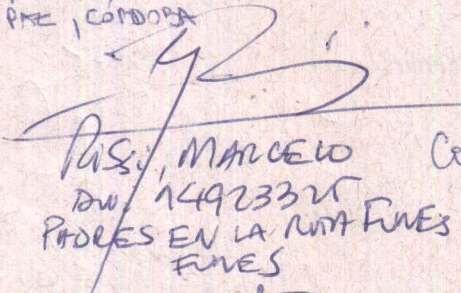 PAZ, CÓRDOBA
RISSI, MARCELO
DNI 14923325
PADRES EN LA RUTA FUNES
FUNES